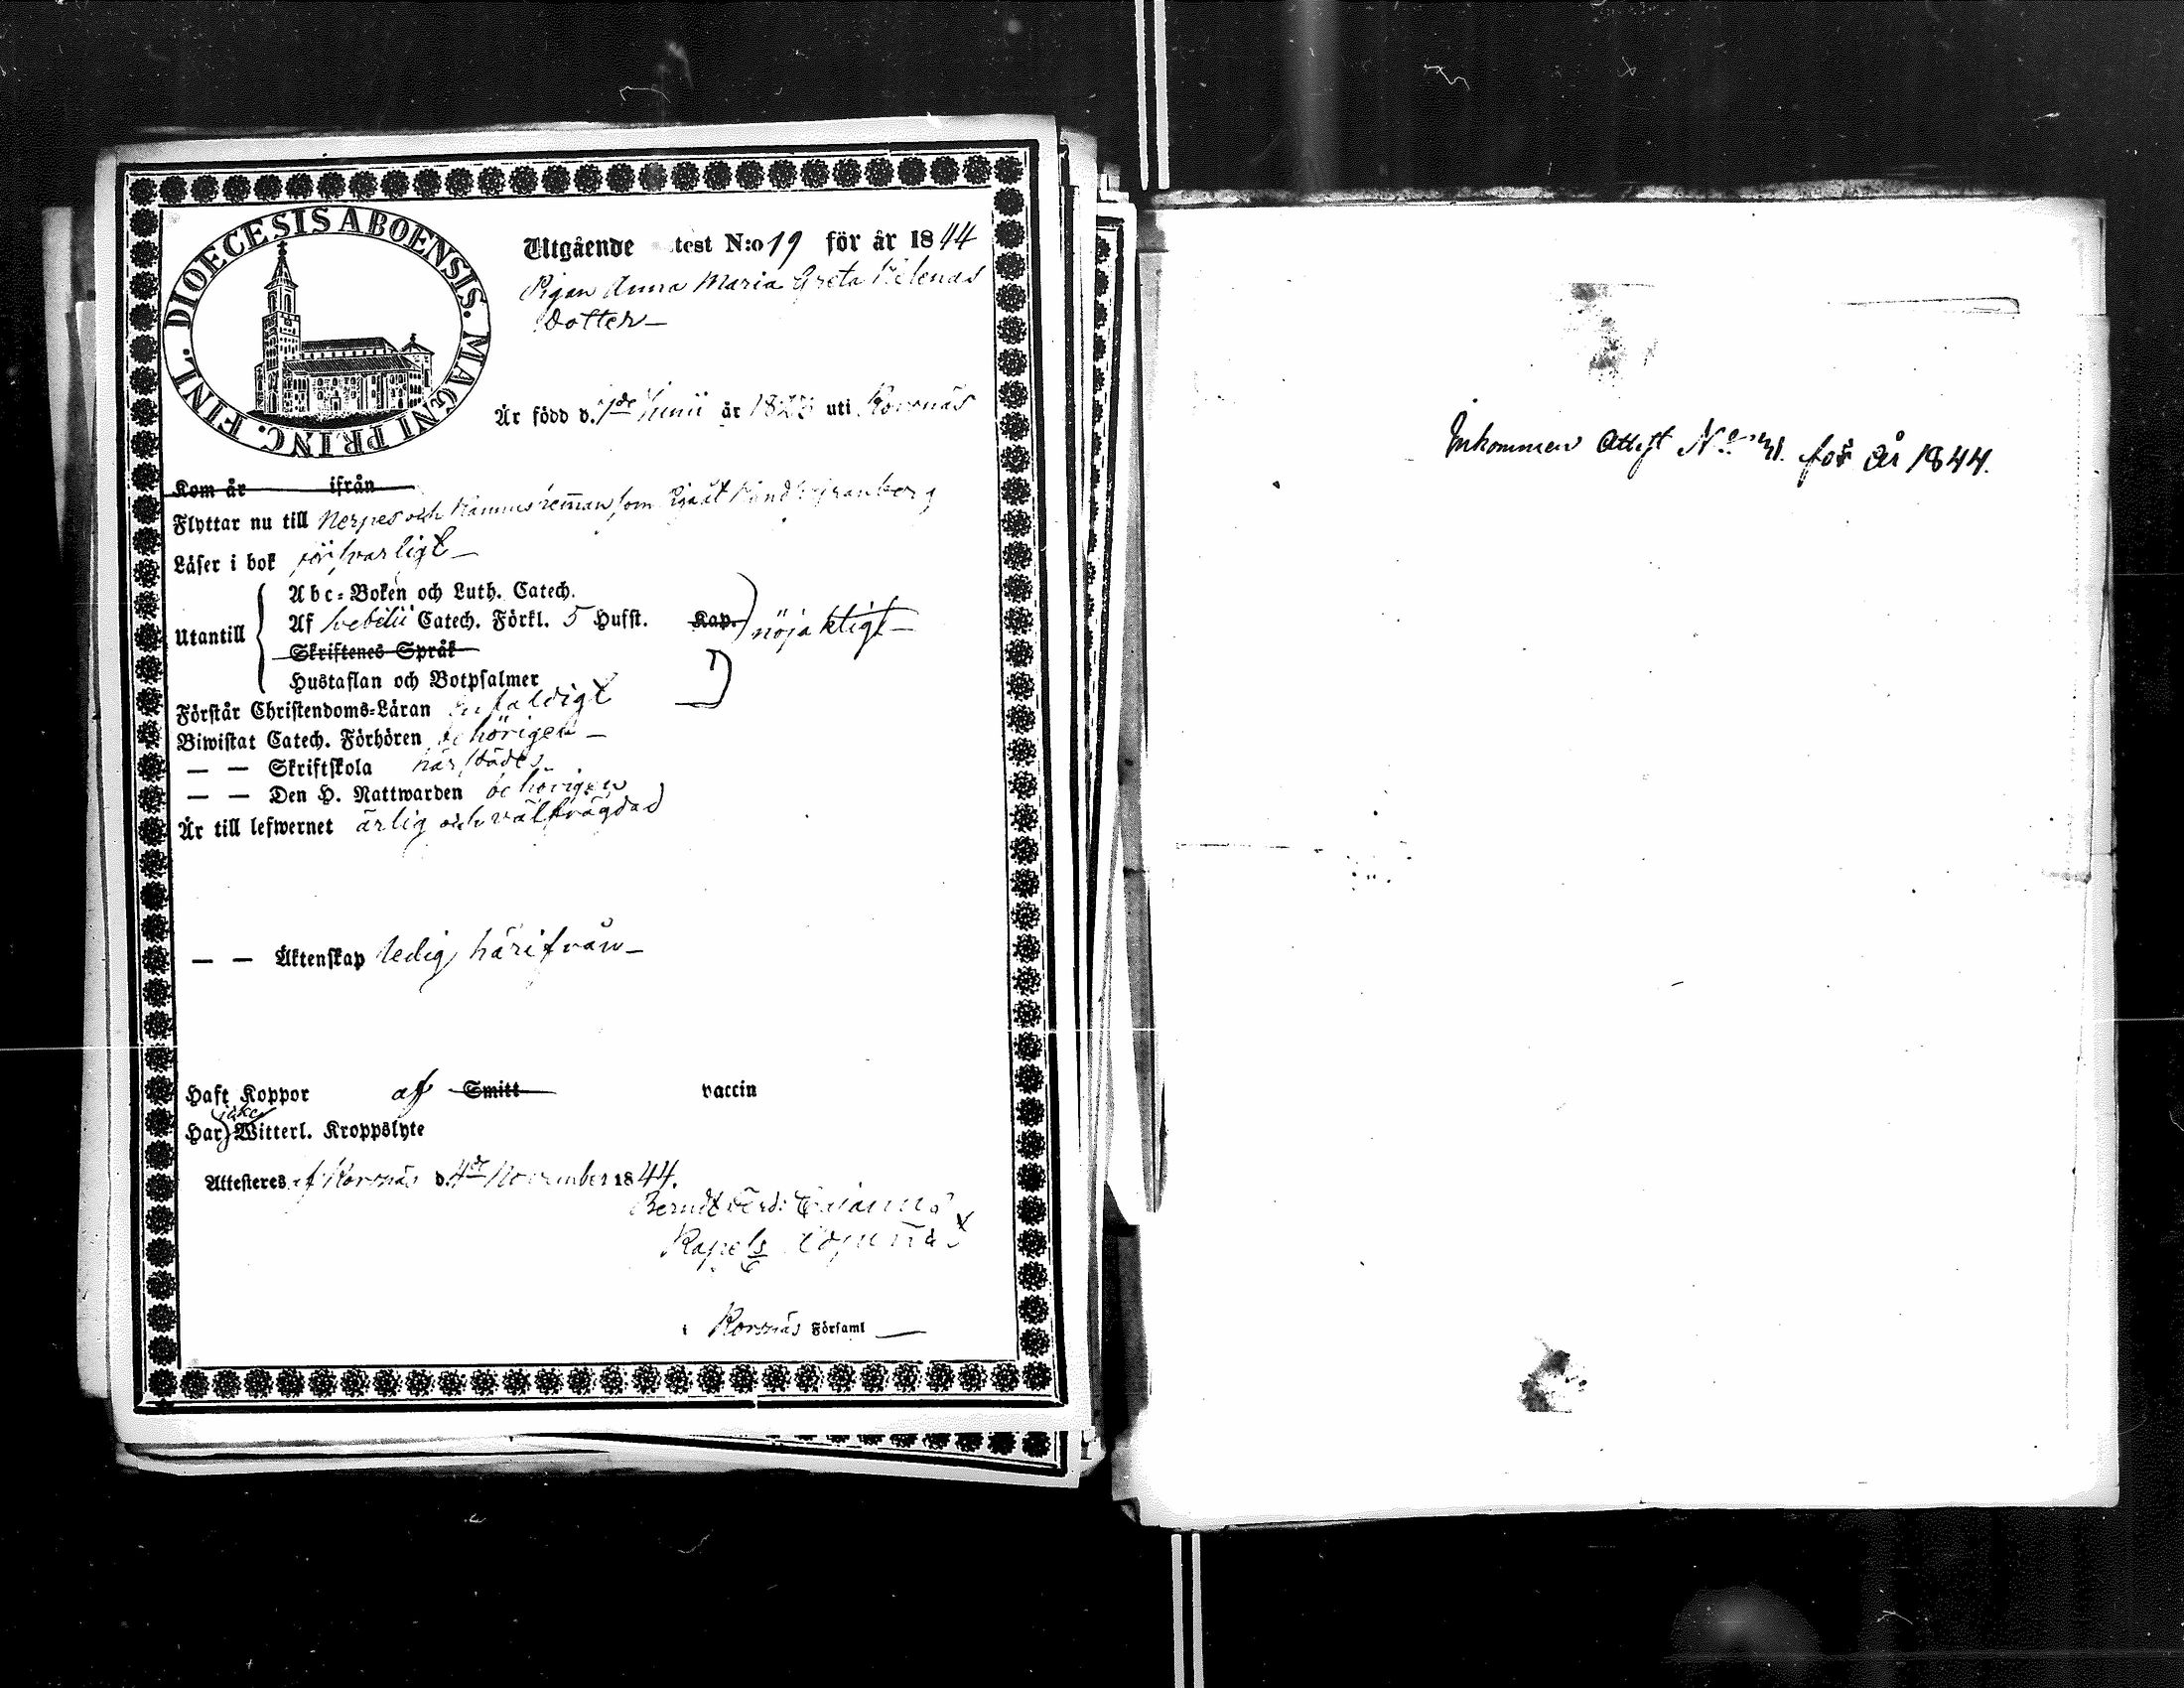 DIOECESIS ABOENSIS. MAGNI PRINC. FINL.
Utgående test N:o 19 för år 1844
Pigan Anna Maria Greta Helenas
dotter—
Är född d. 7de Junii år 182 uti Korsnäs
Kom år ifrån
Flyttar nu till Nerpes och som
Läser i bok försvarligt—
Utantill
Abc-Boken och Luth. Catech.
Af Svebilii Catech. Förkl. 5 Hufst. Kap. nöjaktigt—
Skriftenes Språk
Hustaflan och Botpsalmer
Förstår Christendoms-Läran enfaldigt
Biwistat Catech. Förhören behörigen—
— — Skriftskola härstädes
— — Den H. Nattwarden behörigen
Är till lefwernet ärlig och välfrägdad
— — Äktenskap ledig härifrån—
Haft Koppor af Smitt vaccin
icke
Har Witterl. Kroppslyte
Attesteres af Korsnäs d. 4de November 1844.
Berndt Ferd:
Kapels
i Korsnäs Församl—
Inkommen Attest No 31. för år 1844.